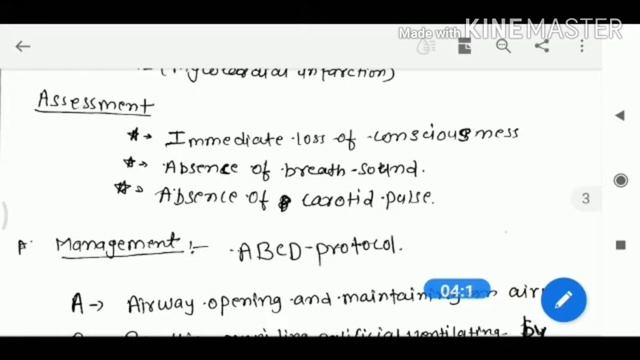 Made with KINEMASTER
:- (Myocardial infarction)
Assessment
Immediate loss of consciousness
Absence of breath-sound.
Absence of carotid pulse.
3
Management :- ABCD-protocol.
04:1
A → Airway opening and maintaining an air
artificial ventilating by